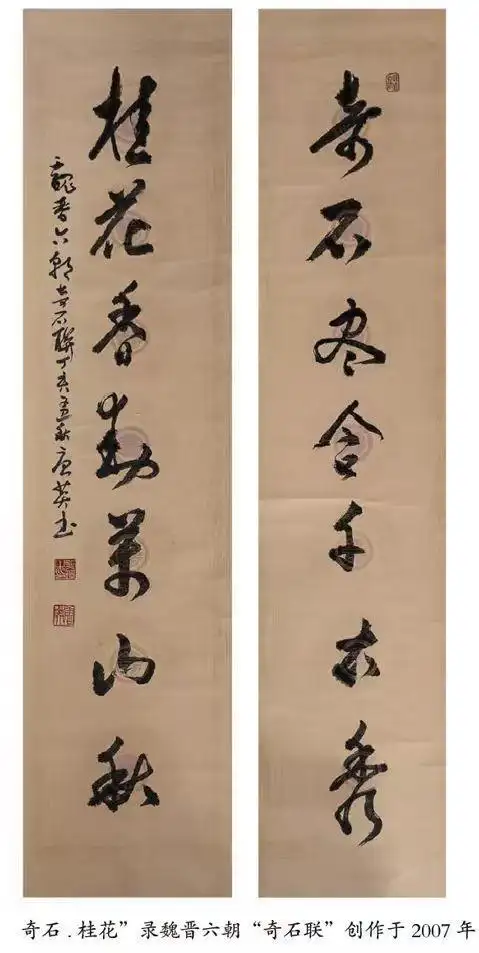 奇石尽含千古秀
桂花香動萬山秋
魏晋六朝奇石聯丁亥孟秋唐英书
奇石 . 桂花”录魏晋六朝“奇石联”创作于 2007 年